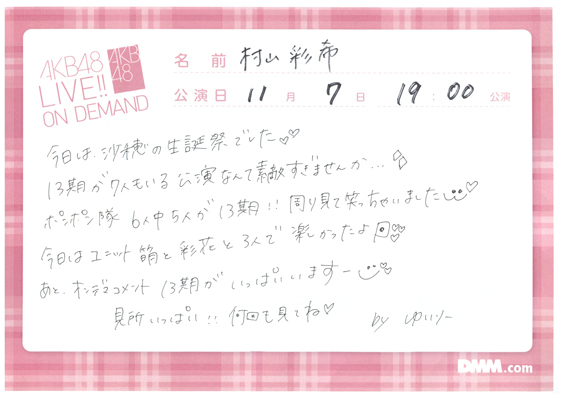 AKB48
LIVE!!
ON DEMAND
AKB
48
名前 村山彩希
公演日 11月7日 19:00公演
今日は、沙穂の生誕祭でした♡♡
13期が7人もいる公演なんて素敵すぎませんか…
ポンポン隊 6人中5人が13期!! 周り見て笑っちゃいました♡
今日はユニット 萌と彩花と3人で楽しかったよ
あと、オンデマコメント 13期がいっぱいいますー♡
見所いっぱい!! 何回も見てね♡
by ゆいりー
DMM.com